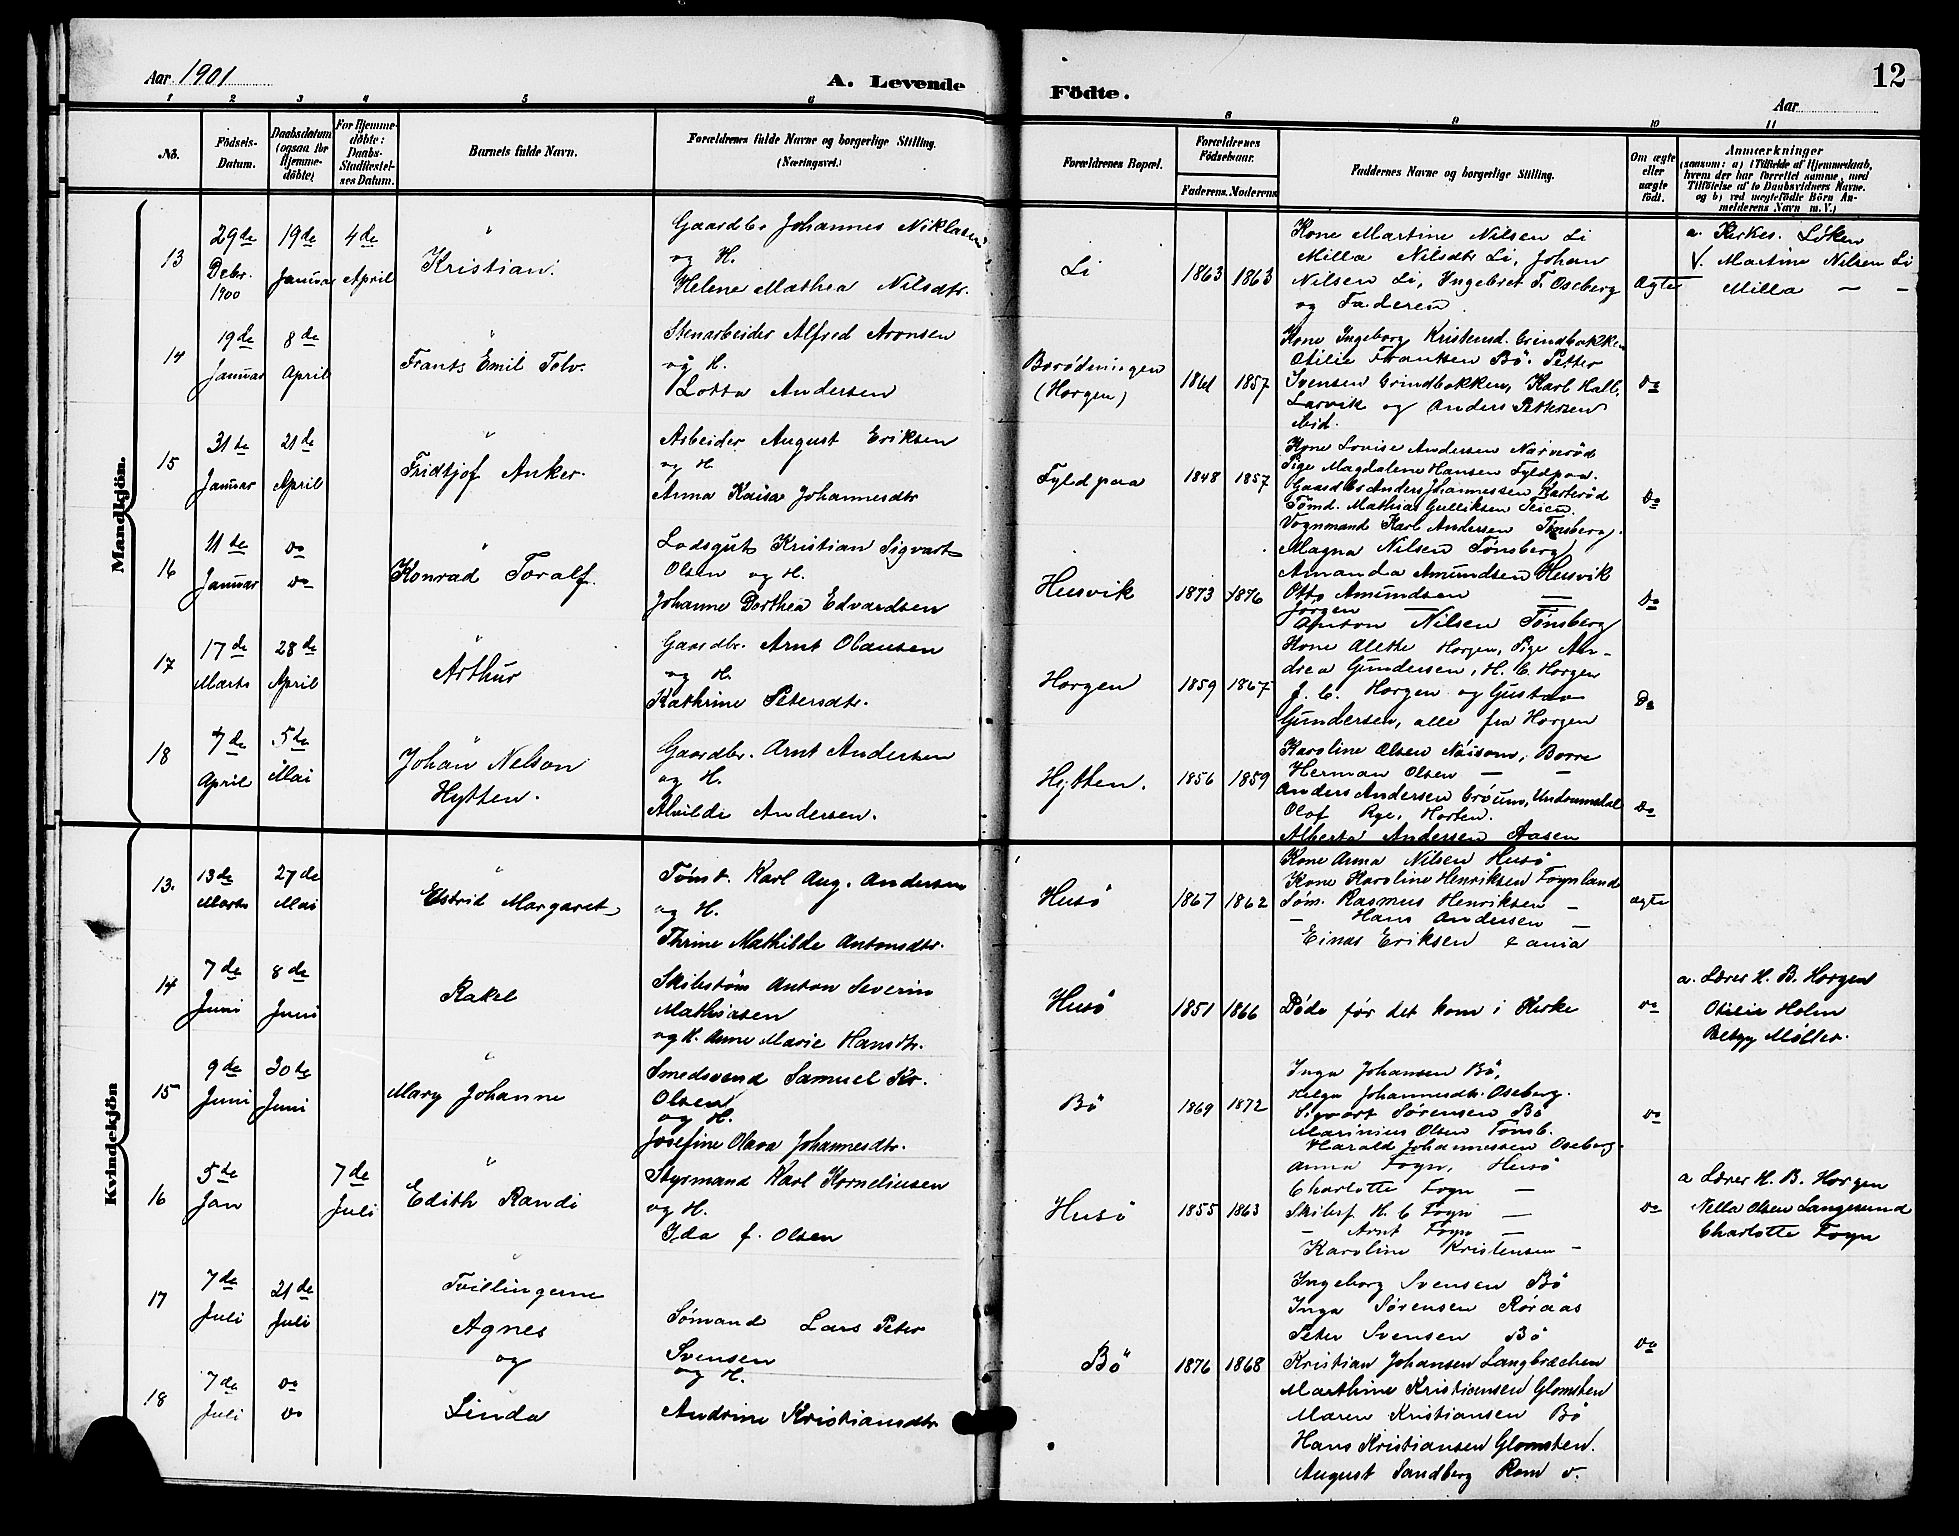 Aar 1901
A. Levende Födte.
Aar
12
1 2 3 4 5 6 8 9 10 11
No.
Födsels-Datum.
Daabsdatum (ogsaa for Hjemmedöbte)
For Hjemmedöbte: Daabs-Stadfæstelses Datum.
Barnets fulde Navn.
Forældrenes fulde Navne og borgerlige Stilling. (Næringsvei.)
Forældrenes Bopæl.
Forældrenes Födselsaar.
Faderens. Moderens
Faddernes Navne og borgerlige Stilling.
Om ægte eller uægte födt.
Anmærkninger
(saasom: a) i Tilfælde af Hjemmedaab, hvem der har forrettet samme, med Tilföielse af to Daabsvidners Navne. og b) ved uægtefödte Börn Anmelderens Navn m. V.)
Mandkjön.
13
29de Debr. 1900
19de Januar
4de April
Kristian.
Gaardbr Johannes Niklasen
og H.
Helene Mathea Nilsdtr.
Li
1863 1863
Kone Martine Nilsen Li
Milla Nilsdtr Li, Johan
Nilsen Li, Ingebret T. Oseberg
og Faderen
Ægte
a. Kirkes. Løken
V. Martine Nilsen Li
Milla — —
14
19de Januar
8de April
Frants Emil Tolv.
Stenarbeider Alfred Aronsen
og H.
Lotta Andersen
(Horgen)
1861 1857
Kone Ingeborg Kristensd. Grindbakken
Otilie Frantsen Bö. Petter
Svensen Grindbakken, Karl Hall,
Larvik og Anders Pettersen
ibid.
do
15
31te Januar
21de April
Fridtjof Anker.
Arbeider August Eriksen
og H.
Anna Kaisa Johannesdtr
Fyldpaa
1848 1857
Kone Lovise Andersen Narverød
Pige Magdalene Hansen Fyldpaa.
Gaardbr Anders Johannessen Barterød
Tömd. Mathias Gulliksen
Vognmand Karl Andersen Tønsberg.
do
16
11te Januar
do do
Konrad Toralf.
Lodsgut Kristian Sigvart
Olsen og H.
Johanne Dorthea Edvardsen
Husvik
1873 1876
Magna Nilsen Tønsberg
Amanda Amundsen Husvik
Otto Amundsen —
Jörgen — —
Anton Nilsen Tønsberg
do
17
17de Marts
28de April
Arthur
Gaardbr. Arnt Olausen
og H.
Kathrine Petersdtr.
Horgen
1859 1867
Kone Alette Horgen, Pige An-
drea Gundersen, H. C. Horgen
J. C. Horgen og Gustav
Gundersen, alle fra Horgen
Do
18
7de April
5te Mai
Johan Nelson
Hytten.
Gaardbr. Arnt Andersen
og H.
Alvilde Andersen.
Hytten.
1856 1859
Karoline Olsen Borre
Herman Olsen — —
Anders Andersen
Olof Rye, Horten.
Alberta Andersen Aasen
do
Kvindekjön
13.
13de Marts
27de Mai
Estrid Margaret
Tömt. Karl Aug. Andersen
og H.
Thrine Mathilde Antonsdtr.
Husö
1867 1862
Kone Anna Nilsen Husö
Kone Karoline Henriksen Föynland
Søm. Rasmus Henriksen —
— Hans Andersen —
Einar Eriksen
ægte
14
7de Juni
8de Juni
Rakel
Skibstøm Anton Severin
Mathiasen
og H. Anne Marie Hansdtr.
Husö
1851 1866
Døde før det kom i Kirke
do
a. Lærer H. B. Horgen
Otilie Holm
Betzy Møller.
15
9de Juni
30te Juni
Mary Johanne
Smedsvend Samuel Kr.
Olsen
og H.
Josefine Olava Johannesdtr.
Bö
1869 1872
Inga Johansen Bö,
Helga Johannesdtr. Oseberg.
Sigvart Sørensen Bö
Marinius Olsen Tönsb.
Harald Johannessen Oseberg.
do
16
5te Jan
7de Juli
Edith Randi
Styrmand Karl Korneliusen
og H.
Ida f. Olsen
Husö
1855 1863
Anna Foyn, Husö
Charlotte Foyn —
Skibsf H C Foyn —
— Arnt Foyn —
Karoline Kristensen —
do
a Lærer H. B. Horgen
Nella Olsen Langesund
Charlotte Foyn
17
7de Juli
21de Juli
Tvillingerne
Agnes
og
18
7de Juli
do do
Linda
Sømand Lars Peter
Svensen
og H.
Andrine Kristiansdtr.
Bö
1876 1868
Ingeborg Svensen Bö
Inga Sørensen Røraas
Peter Svensen Bö
Kristian Johansen Langbrækken
Marthine Kristiansen Glomsten
Maren Kristiansen Bö
Hans Kristiansen Glomsten.
August Sandberg Rom v.
do